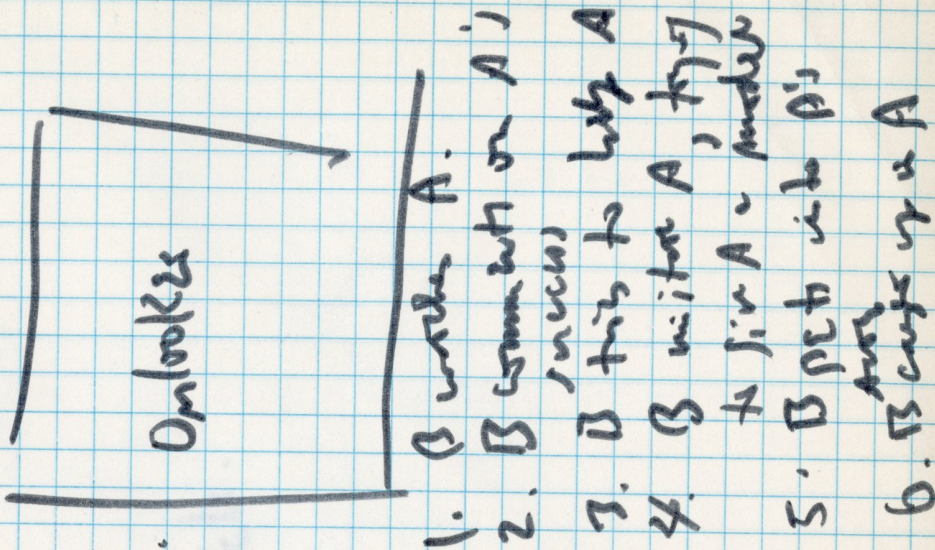 Onlooker
1. B watches A.
2. B comments on A's
success
3. B tries to help A
4. B imitates A, trying
to give A a model
5. B gets into A's
6. B cuts up A